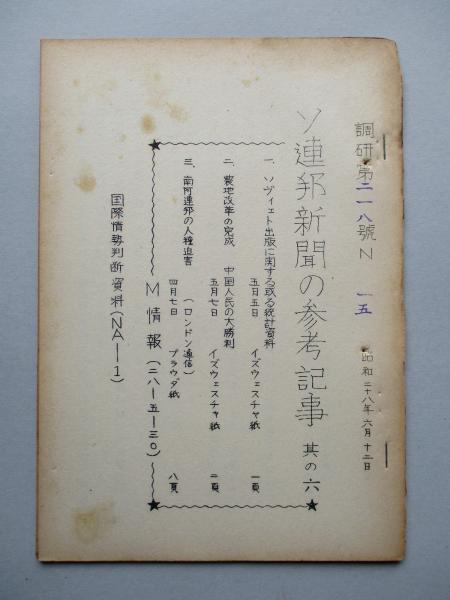 調研第二一八號N 一五 昭和二十八年六月十二日
ソ連邦新聞の参考記事 其の六
一、ソヴィェト出版に関する或る統計資料
五月五日 イズヴェスチャ紙 一頁
二、農地改革の完成 中国人民の大勝利
五月七日 イズヴェスチャ紙 二頁
三、南阿連邦の人種迫害 (ロンドン通信)
四月七日 プラウダ紙 八頁
M情報(二八ー五ー三〇)
国際情勢判断資料(NAー1)